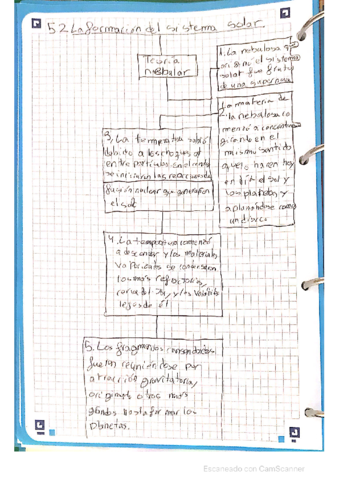 5.2 La formación del sistema solar.
Teoría
nebular
1. La nebulosa q
originó el sistema
solar fue fruto
de una supernova
2. La materia de
la nebulosa co
menzó a concentrarse
girando en el
mismo sentido
que lo hacen hoy
en día el sol y
los planetas y
aplanándose como
un disco.
3. La temperatura subió
debido a los choques
entre partículas
se iniciaron las reacciones de
fusión nuclear que generaron
el sol
4. La temperatura comenzó
a descender y los materiales
se condensaron
los más refractarios
cerca del sol, y los volátiles
lejos de él
5. Los fragmentos condensados
fueron reuniéndose por
atracción gravitatoria,
originando otros más
grandes hasta formar los
planetas.
Escaneado con CamScanner